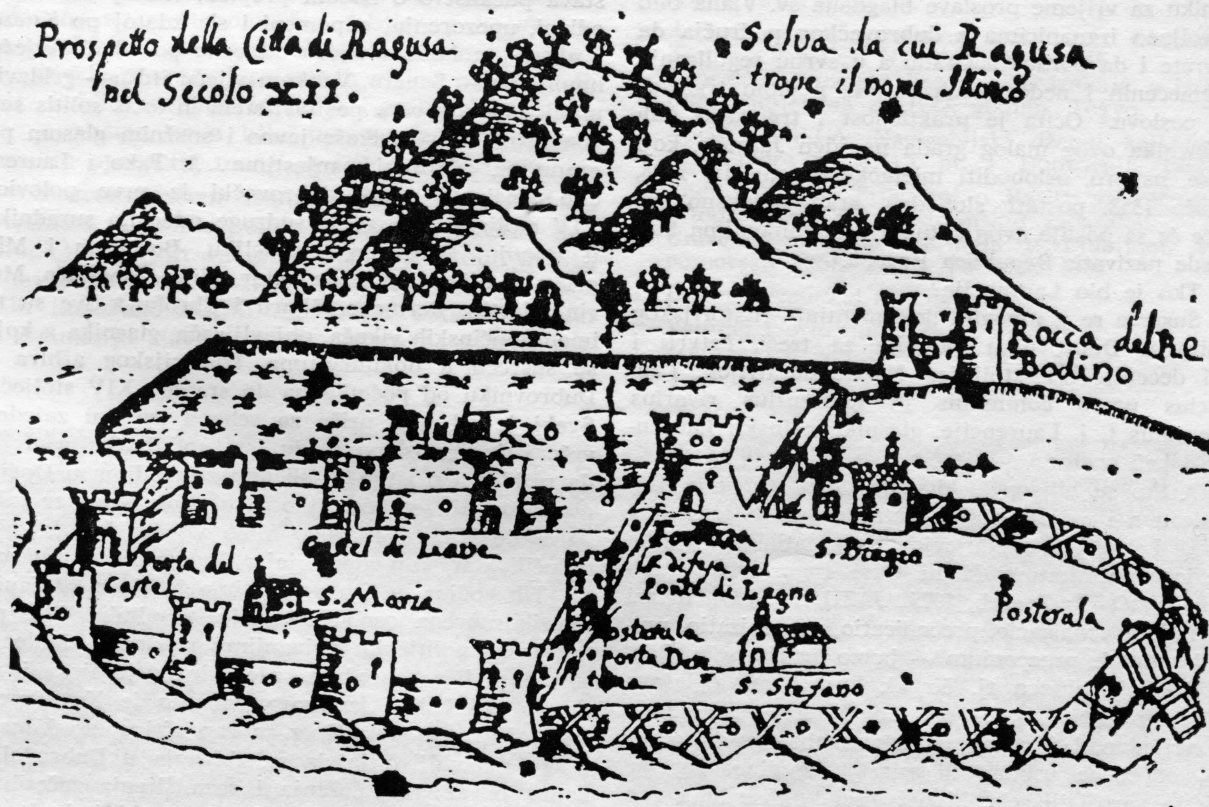 Prospetto della Città di Ragusa
nel Secolo XII.
Selva da cui Ragusa
trasse il nome Slavico
Rocca del Re
Bodino
Paludazzo
Castel di Lave
Porta del
Castel
S. Maria
Fortezza
La difesa del
Ponte di Legno
S. Biagio
Posterula
Posterula
porta
S. Stefano